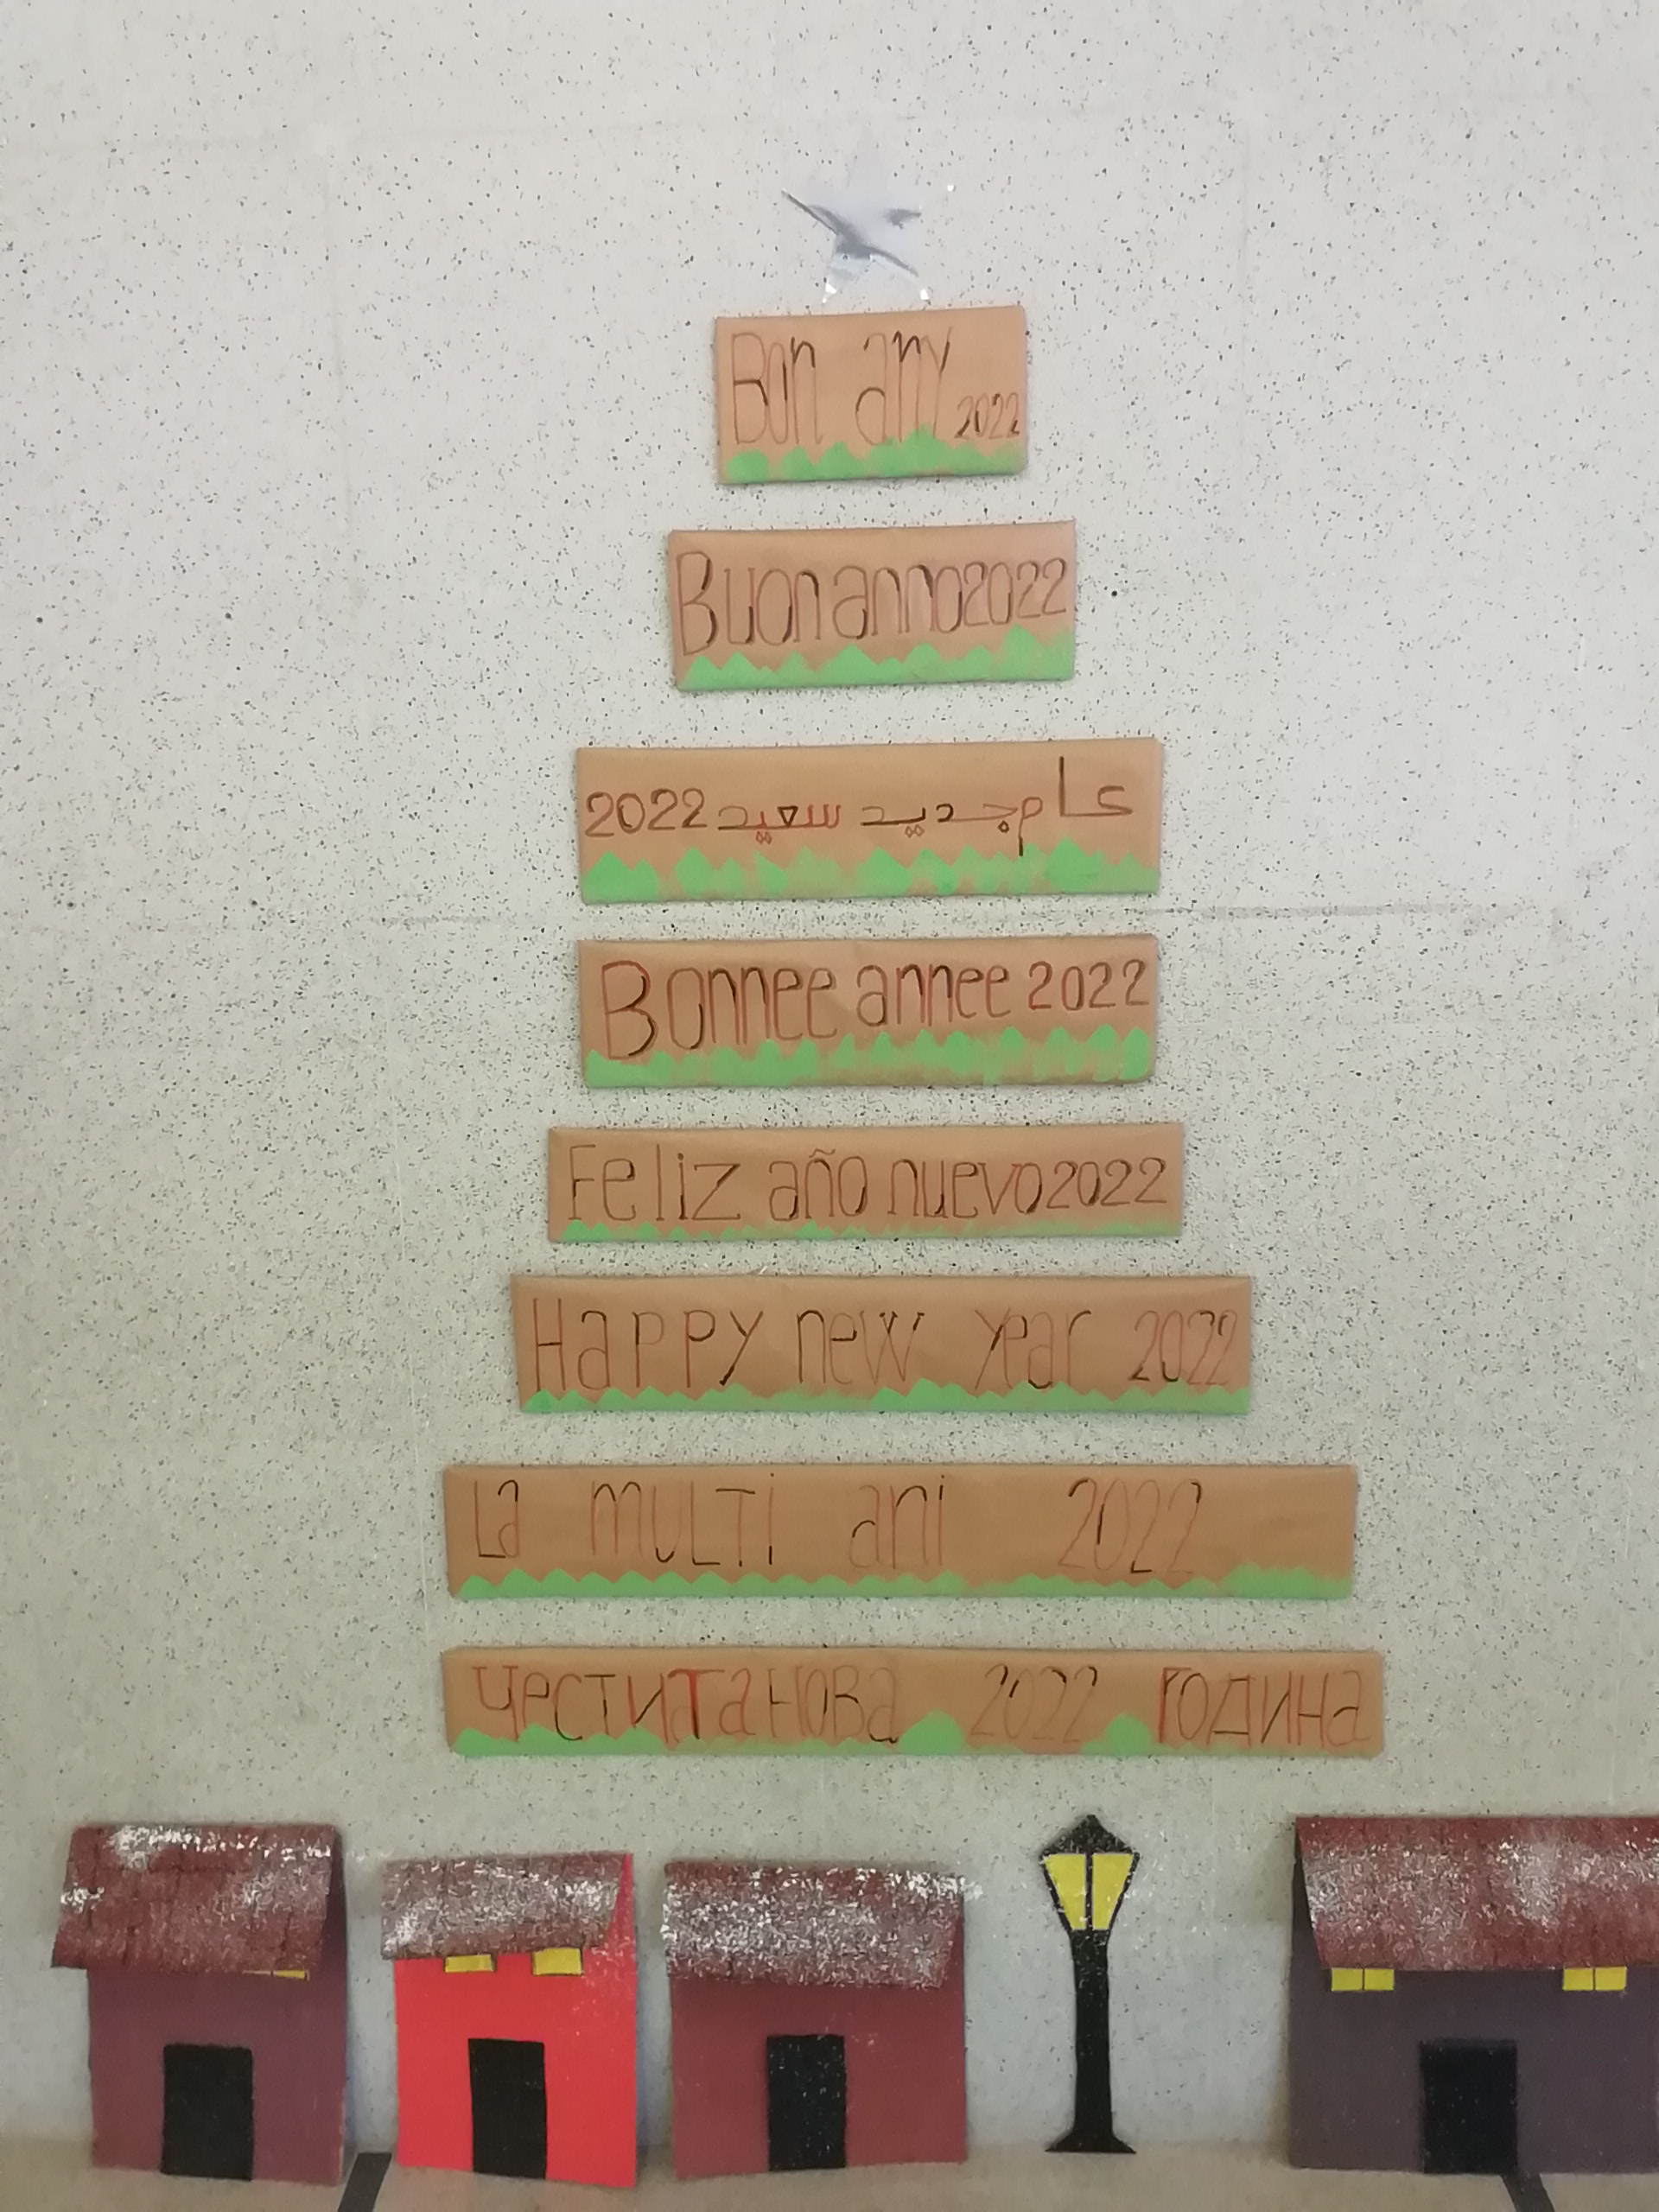 Bon any 2022
Buon anno 2022
عام جديد سعيد 2022
Bonnee annee 2022
Feliz año nuevo 2022
Happy new year 2022
La MULTi ani 2022
Честита нова 2022 година